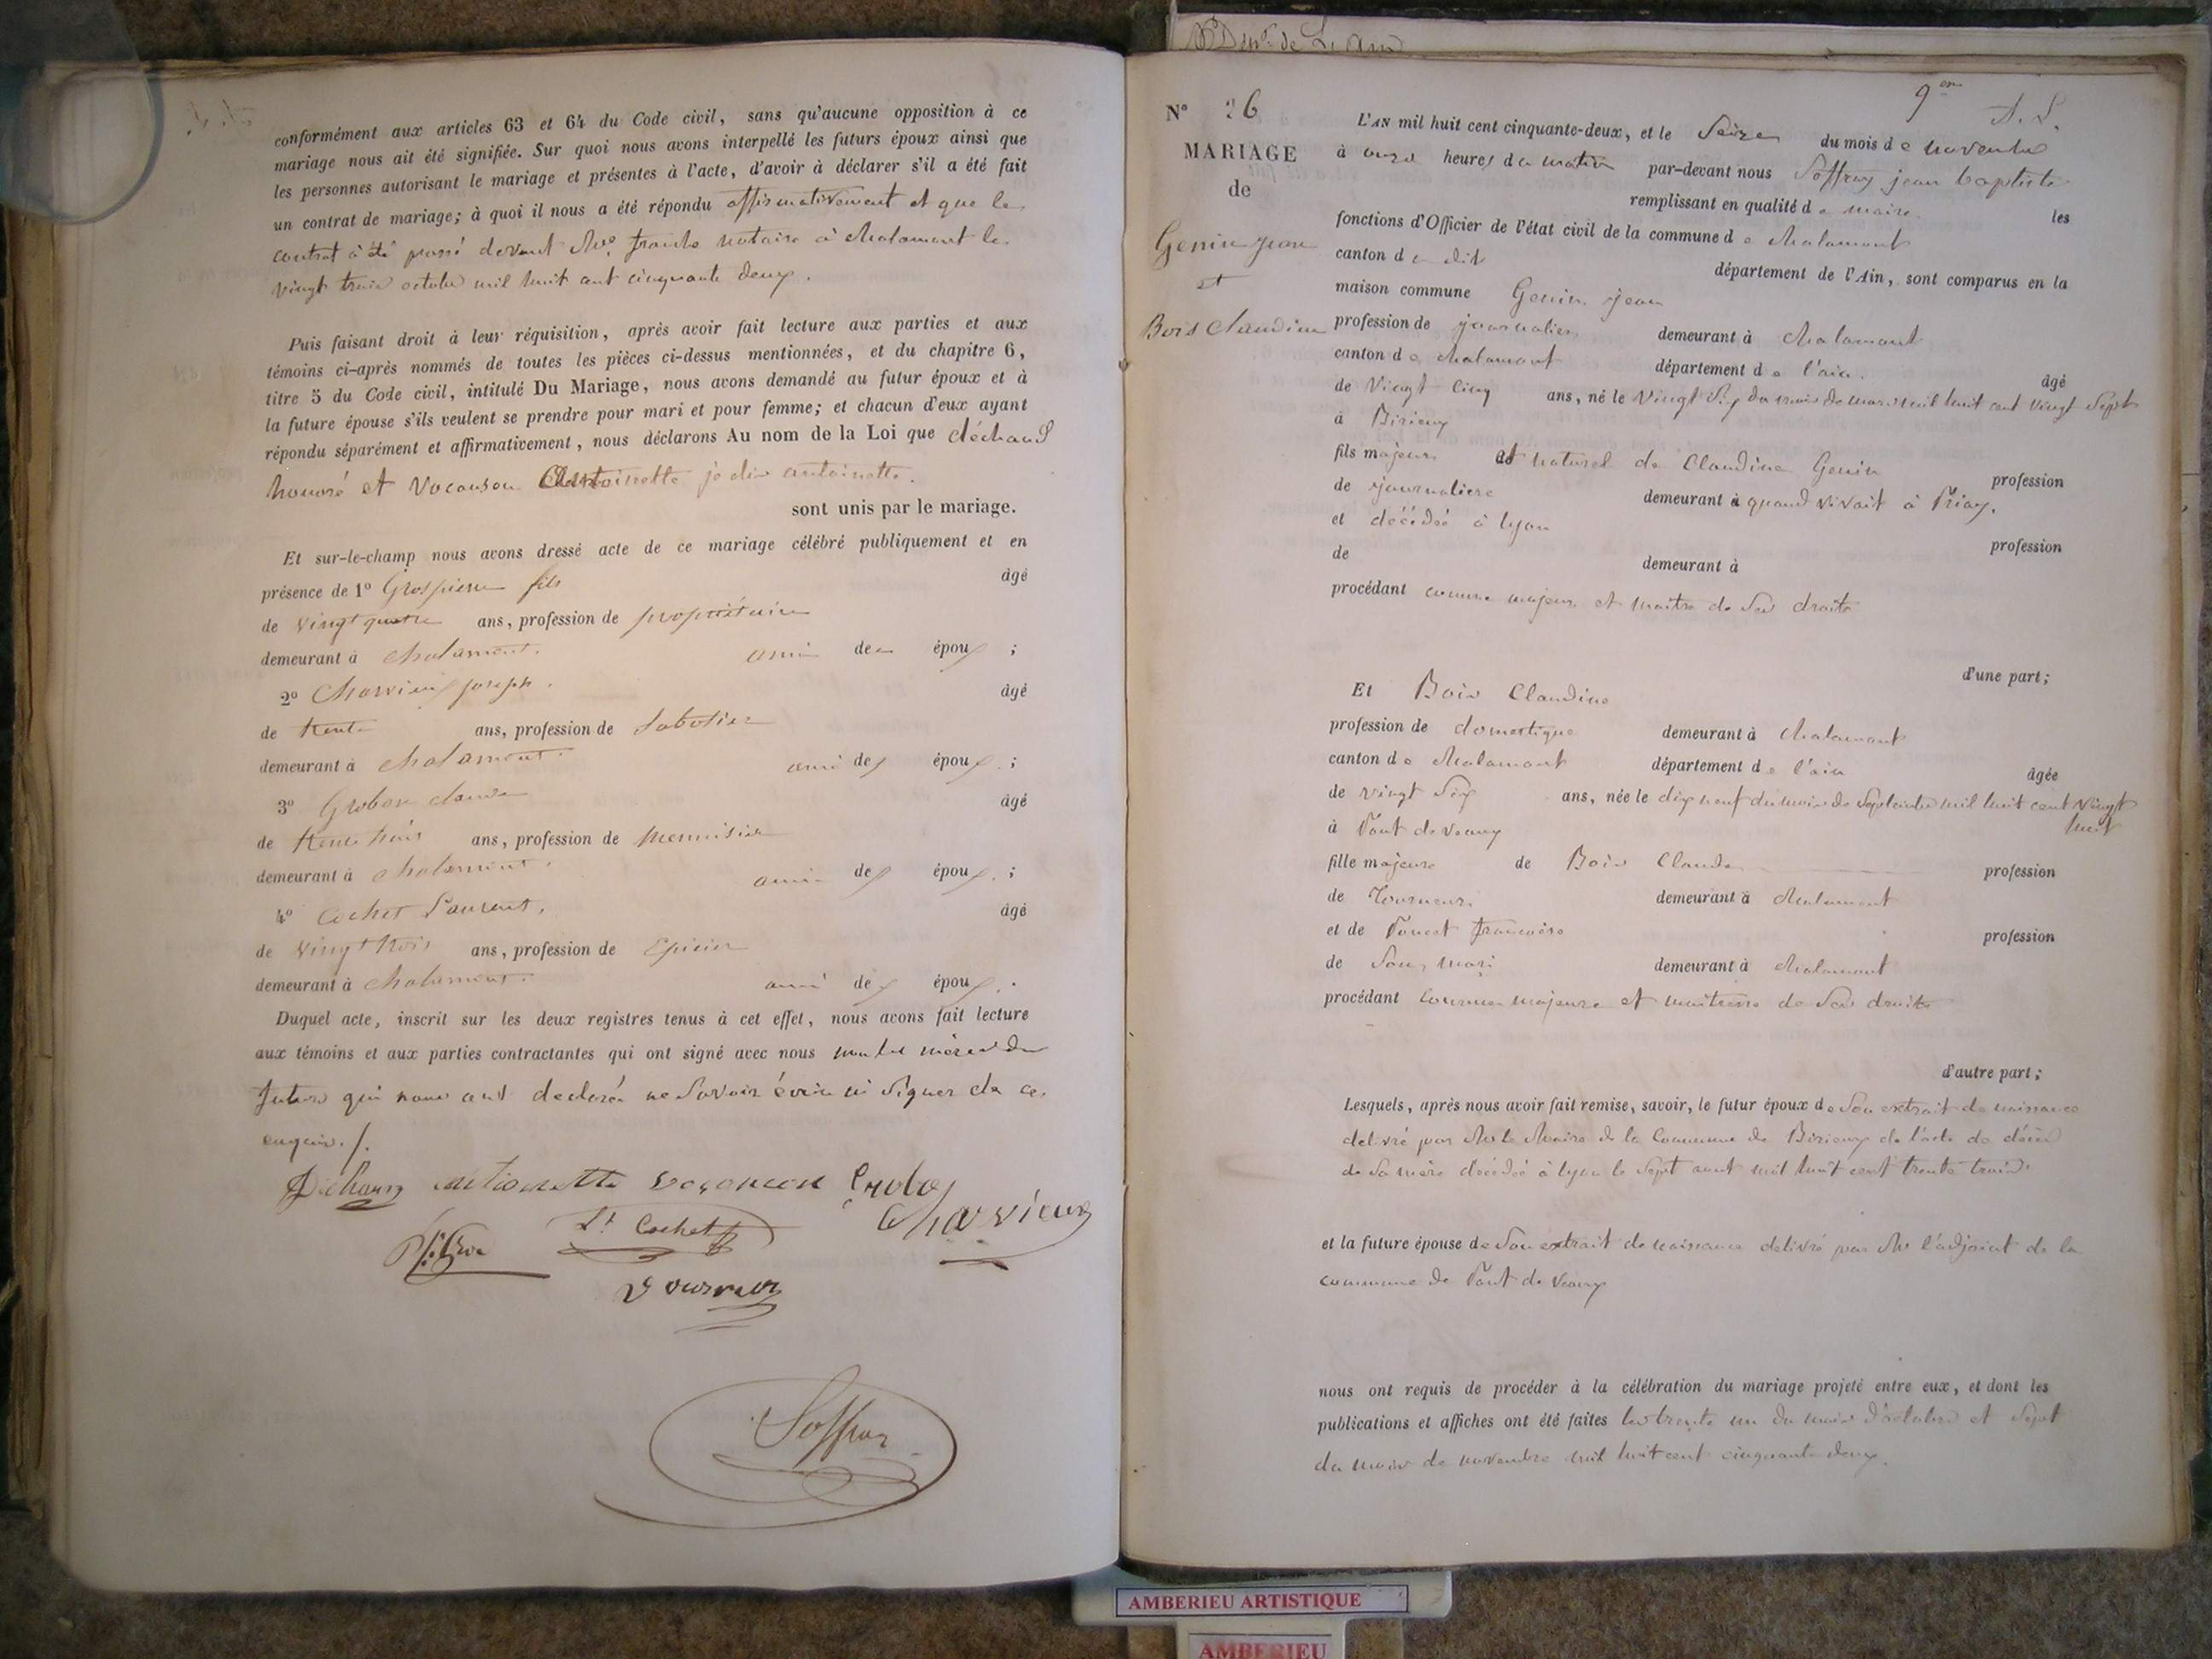 conformément aux articles 63 et 64 du Code civil, sans qu'aucune opposition à ce
mariage nous ait été signifiée. Sur quoi nous avons interpellé les futurs époux ainsi que
les personnes autorisant le mariage et présentes à l'acte, d'avoir à déclarer s'il a été fait
un contrat de mariage; à quoi il nous a été répondu affirmativement et que le
contrat à été passé devant notaire à chalamont le
vingt trois octobre mil huit cent cinquante deux.
Puis faisant droit à leur réquisition, après avoir fait lecture aux parties et aux
témoins ci-après nommés de toutes les pièces ci-dessus mentionnées, et du chapitre 6,
titre 5 du Code civil, intitulé Du Mariage, nous avons demandé au futur époux et à
la future épouse s'ils veulent se prendre pour mari et pour femme; et chacun d'eux ayant
répondu séparément et affirmativement, nous déclarons Au nom de la Loi que déchaud
honoré et Vocanson je dis antoinette.
sont unis par le mariage.
Et sur-le-champ nous avons dressé acte de ce mariage célébré publiquement et en
présence de 1° Grospierre fils âgé
de vingt quatre ans, profession de propriétaire
demeurant à chalamont. ami des époux ;
2° Charvieux joseph. âgé
de trente ans, profession de Sabotier
demeurant à chalamont. ami des époux ;
3° Grobon claude âgé
de trente trois ans, profession de Menuisier
demeurant à chalamont. ami des époux ;
4° Cochet Laurent. âgé
de vingt trois ans, profession de Epicier
demeurant à chalamont. ami des époux .
Duquel acte, inscrit sur les deux registres tenus à cet effet, nous avons fait lecture
aux témoins et aux parties contractantes qui ont signé avec nous non les mères des
futurs qui nous ont déclaré ne Savoir écrire ni Signer de ce
enquis./.
Dechaud antoinette vocanson Grobon
Charvieux
Lt Cochet
Soffray
N° 26
MARIAGE
de
Genin jean
et
Bois Claudine
9
L'AN mil huit cent cinquante-deux, et le Seize du mois de novembre
à onze heures du matin par-devant nous Soffray jean baptiste
remplissant en qualité de maire les
fonctions d'Officier de l'état civil de la commune de chalamont
canton du dit département de l'Ain, sont comparus en la
maison commune Genin jean
profession de journalier demeurant à chalamont
canton de chalamont département de l'ain. âgé
de Vingt Cinq ans, né le Vingt Six du mois de mars mil huit cent Vingt Sept
à Birieux
fils majeur et naturel de Claudine Genin profession
de journaliere demeurant à quand vivait à Priay.
et décédée à lyon profession
de demeurant à
procédant comme majeur et maitre de Ses droits
d'une part;
Et Bois Claudine
profession de domestique demeurant à chalamont
canton de chalamont département de l'ain âgée
de vingt Six ans, née le dix neuf du mois de Septembre mil huit cent vingt
huit
à Pont de veaux
fille majeure de Bois Claude profession
de Tourneur demeurant à chalamont
et de Poncet francoise profession
de Son mari demeurant à chalamont
procédant comme majeure et maitresse de Ses droits
d'autre part;
Lesquels, après nous avoir fait remise, savoir, le futur époux de Son extrait de naissance
délivré par Mr le Maire de la Commune de Birieux de l'acte de décès
de Sa mère décédée à lyon le Sept aout mil huit cent trente trois
et la future épouse de Son extrait de naissance délivré par Mr l'adjoint de la
commune de Pont de Veaux
nous ont requis de procéder à la célébration du mariage projeté entre eux, et dont les
publications et affiches ont été faites les trente un du mois d'octobre et Sept
du mois de novembre mil huit cent cinquante deux.
AMBERIEU ARTISTIQUE
AMBERIEU